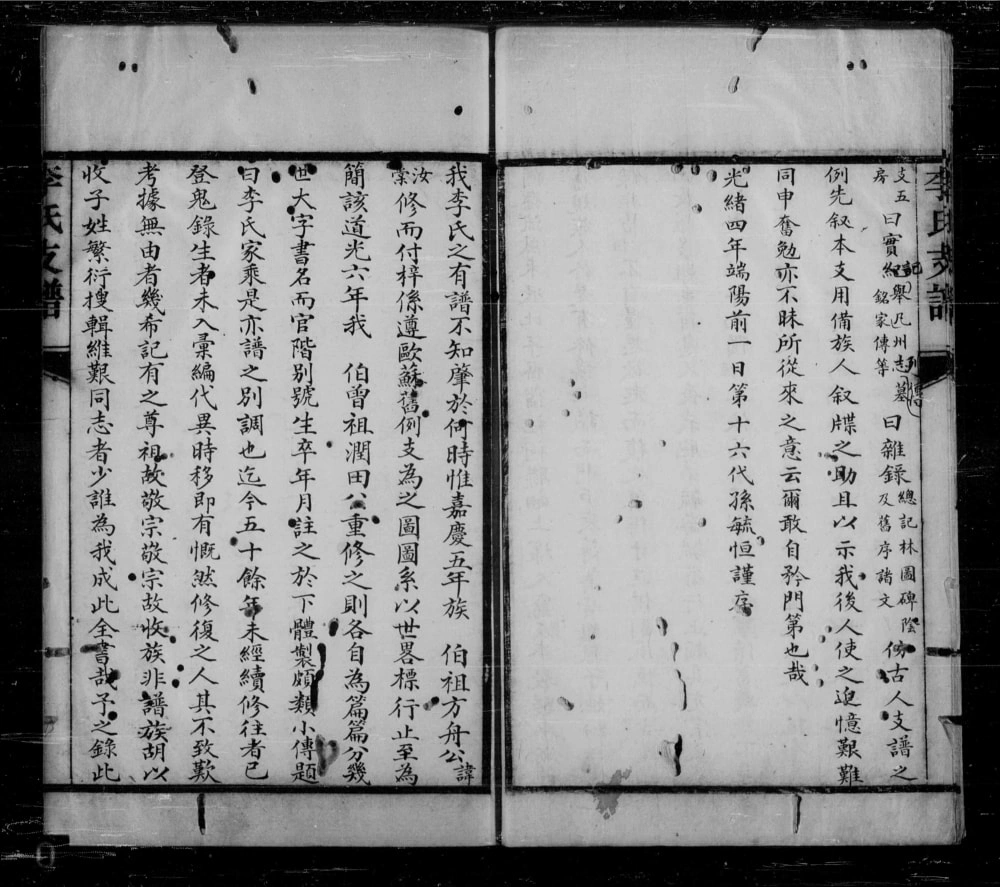 李氏支譜
支五
房
曰實紀記舉邑州志列傳墓
銘家傳等
曰雜錄
總記林圖碑陰
及舊序諸文
倣古人支譜之
例先叙本支用備族人叙牒之助且以示我後人使之追憶艱難
同申奮勉亦不昧所從來之意云爾敢自矜門第也哉
光緒四年端陽前一日第十六代孫毓恒謹序
我李氏之有譜不知肇於何時惟嘉慶五年族 伯祖方舟公諱
汝棠修而付梓係遵歐蘇舊例支為之圖圖系以世畧標行止至為
簡該道光六年我 伯曾祖潤田公重修之則各自為篇篇分幾
世大字書名而官階別號生卒年月註之於下體製頗類小傳題
曰李氏家乘是亦譜之別調也迄今五十餘年未經續修往者已
登鬼錄生者未入彙編代異時移即有慨然修復之人其不致歎
考據無由者幾希記有之尊祖故敬宗敬宗故收族非譜族胡以
收子姓繁衍搜輯維艱同志者少誰為我成此全書哉予之錄此
李氏支譜